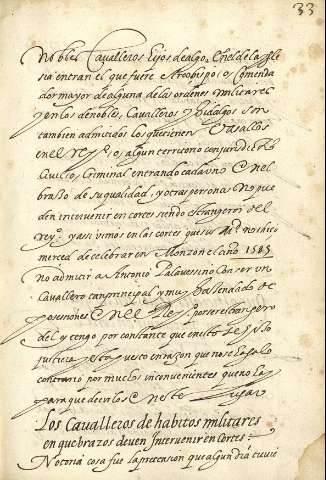 33
Nobles Cavalleros hijos de algo. En el de la Igle
sia entran el que fuere Arçobispo, o Comenda
dor mayor de alguna de las ordenes militares
y en los de nobles, Cavalleros y Hidalgos son
tambien admitidos los que tienen Vasallos
en el reyno, o algun territorio con jurisdon
Civil o Criminal entrando cada uno en el
brasso de su qualidad, y otras personas no pue
den intervenir en cortes siendo estrangeros del
reyno: y assi vimos en las cortes que su Md nos hizo
merced de celebrar en Monzon el año 1585
no admitir a Antonio Palavessino con ser un
Cavallero tan principal y muy hastendado de
posesiones en el Reyno por ser estranjero
del y tengo por constante que en esto se hizo
justicia y esto puesto en razon que no sea solo
contrario por muchos inconvenientes que no ay
para que decirlos en este lugar
Los Cavalleros de habitos militares
en que brazos deven Intervenir en Cortes:
Notoria cosa fue la pretension que algun dia tuvie